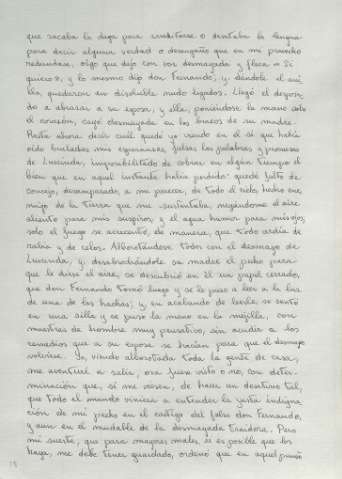 que sacaba la daga para acreditarse o desataba la lengua
para decir alguna verdad o desengaño que en mi provecho
redundase, oigo que dijo con voz desmayada y flaca = Sí
quiero =, y lo mesmo dijo don Fernando; y, dándole el ani-
llo, quedaron en disoluble nudo ligados. Llegó el desposa-
do a abrazar a su esposa, y ella, poniéndose la mano sobre
el corazón, cayó desmayada en los brazos de su madre.
Resta ahora decir cuál quedé yo viendo en el sí que había
oído burladas mis esperanzas, falsas las palabras y promesas
de Luscinda, imposibilitado de cobrar en algún tiempo el
bien que en aquel instante había perdido: quedé falto de
consejo, desamparado, a mi parecer, de todo el cielo, hecho ene-
migo de la tierra que me sustentaba, negándome el aire
aliento para mis suspiros, y el agua humor para mis ojos;
solo el fuego se acrecentó, de manera, que todo ardía de
rabia y de celos. Alborotáronse todos con el desmayo de
Luscinda, y, desabrochándole su madre el pecho para
que le diese el aire, se descubrió en él un papel cerrado,
que don Fernando tomó luego y se le puso a leer a la luz
de una de las hachas; y, en acabando de leerle, se sentó
en una silla y se puso la mano en la mejilla, con
muestras de hombre muy pensativo, sin acudir a los
remedios que a su esposa se hacían para que el desmayo
volviese. Yo, viendo alborotada toda la gente de casa,
me aventuré a salir, ora fuese visto o no, con deter-
minación que, si me viesen, de hacer un desatino tal,
que todo el mundo viniera a entender la justa indigna-
ción de mi pecho en el castigo del falso don Fernando,
y aun en el mudable de la desmayada traidora. Pero
mi suerte, que para mayores males, si es posible que los
haya, me debe tener guardado, ordenó que en aquel punto